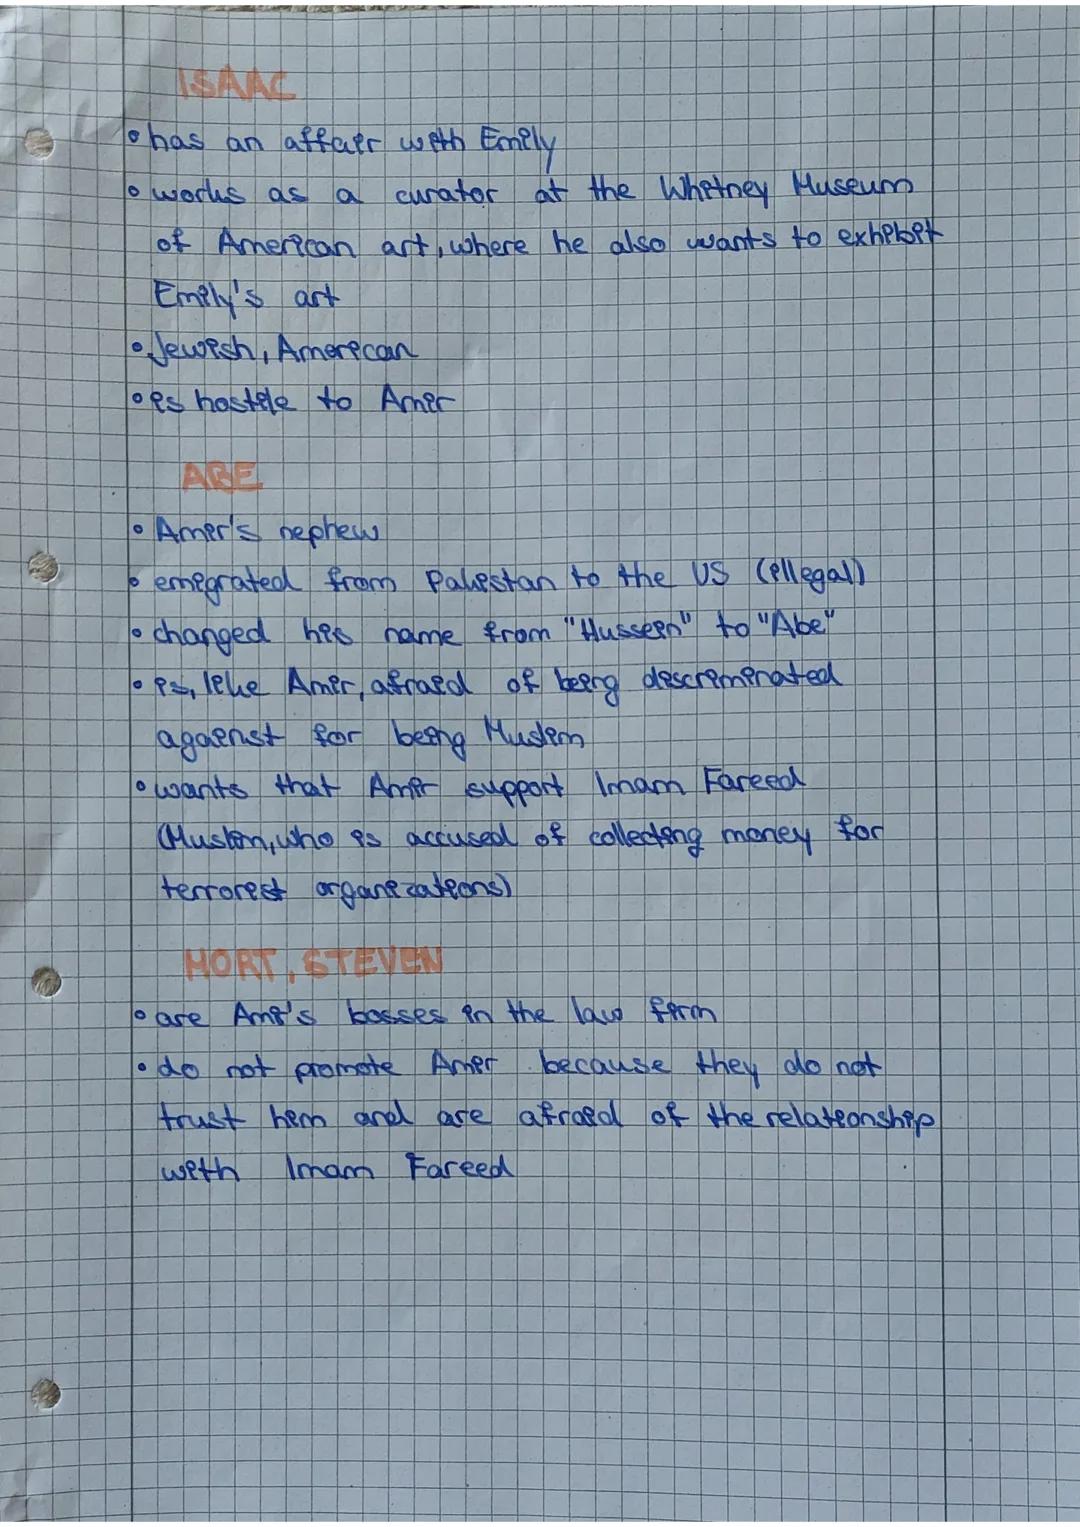 ISAAC
• has an affair with Emily
• works as a curator at the Whitney Museum
of American art, where he also wants to exhibit
Emily's art
• Jewish, American
• is hostile to Amir
ABE
• Amir's nephew
• emigrated from Pakistan to the US (illegal)
• changed his name from "Hussein" to "Abe"
• is, like Amir, afraid of being discriminated
against for being Muslim
• wants that Amir support Imam Fareed
(Muslim, who is accused of collecting money for
terrorist organizations)
MORT, STEVEN
• are Amir's bosses in the law firm
• do not promote Amir because they do not
trust him and are afraid of the relationship
with Imam Fareed